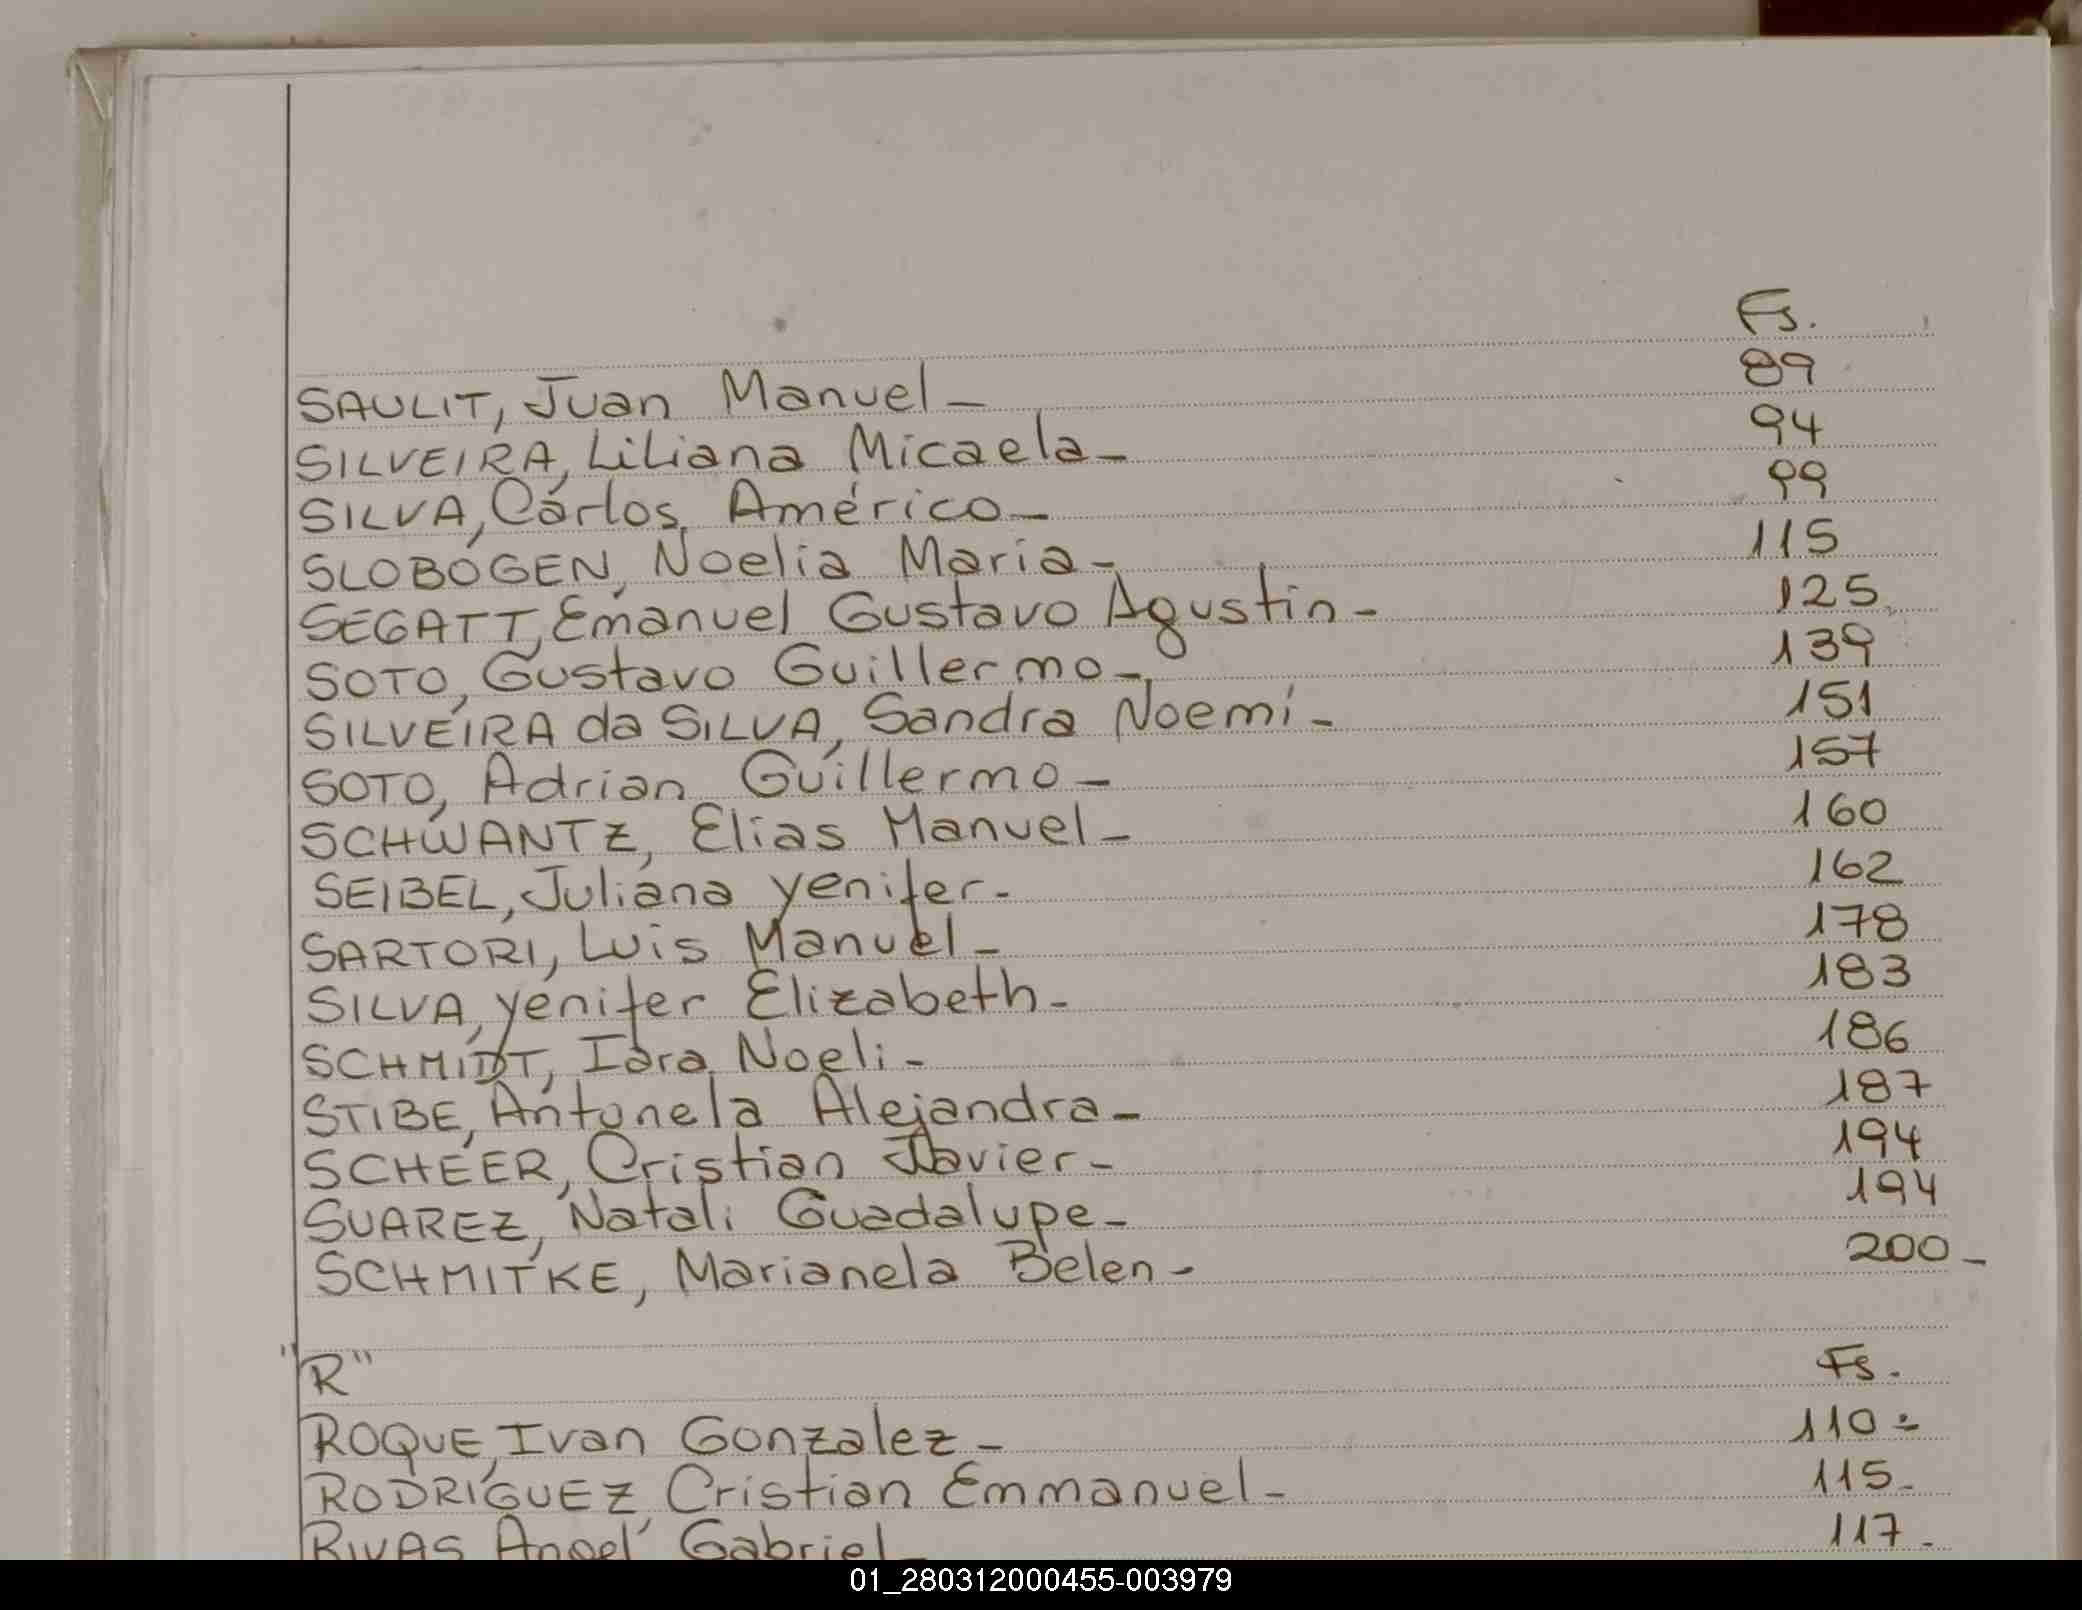 Fs.
SAULIT, Juan Manuel - 89
SILVEIRA, Liliana Micaela - 94
SILVA, Carlos Américo - 99
SLOBOGEN, Noelia Maria - 115
SEGATT, Emanuel Gustavo Agustin - 125
SOTO, Gustavo Guillermo - 139
SILVEIRA da SILVA, Sandra Noemí - 151
SOTO, Adrian Guillermo - 157
SCHWANTZ, Elias Manuel - 160
SEIBEL, Juliana Yenifer - 162
SARTORI, Luis Manuel - 178
SILVA, Yenifer Elizabeth - 183
SCHMIDT, Iara Noeli - 186
STIBE, Antonela Alejandra - 187
SCHEER, Cristian Javier - 194
SUAREZ, Natali Guadalupe - 194
SCHMITKE, Marianela Belen - 200 -
"R" Fs.
ROQUE, Ivan Gonzalez - 110 -
RODRIGUEZ Cristian Emmanuel - 115 -
RIVAS Angel Gabriel - 117 -
01_280312000455-003979